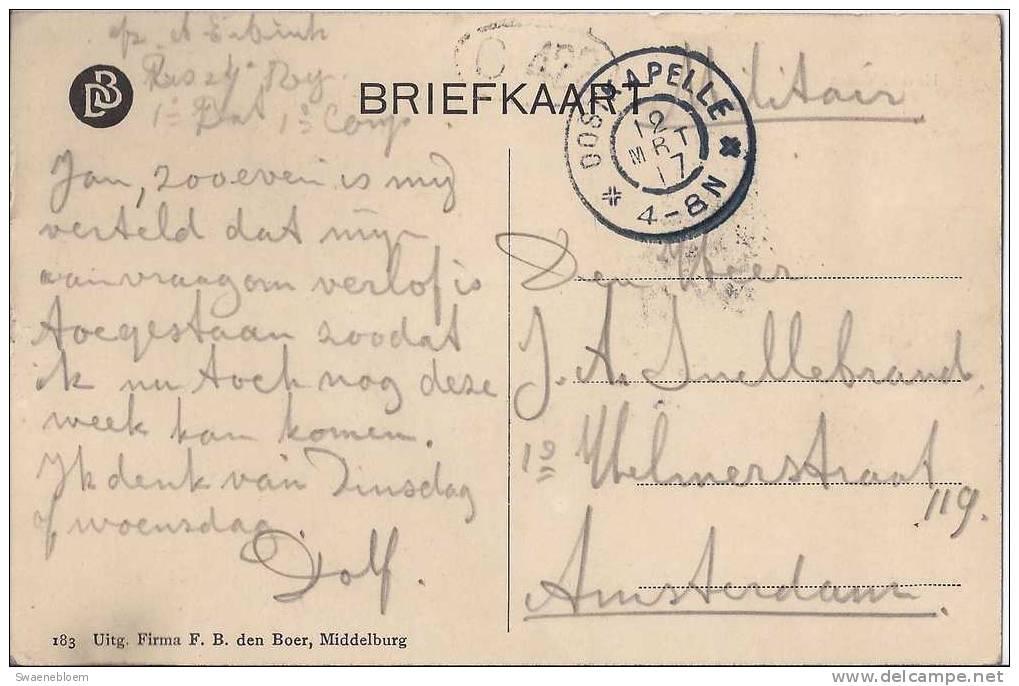 DB
BRIEFKAART
Militair
OOSTKAPELLE
12
MRT
17
4-8N
1e Bat 1e Comp.
Jan, zooeven is mij
verteld dat mijn
aanvraag om verlof is
toegestaan zoodat
ik nu toch nog deze
week kan komen.
Ik denk van Dinsdag
of woensdag.
Dolf.
Den Heer
J. A. Snellebrand.
1e Helmerstraat
119.
Amsterdam.
183 Uitg. Firma F. B. den Boer, Middelburg
Swaenebloem
www.delcampe.net